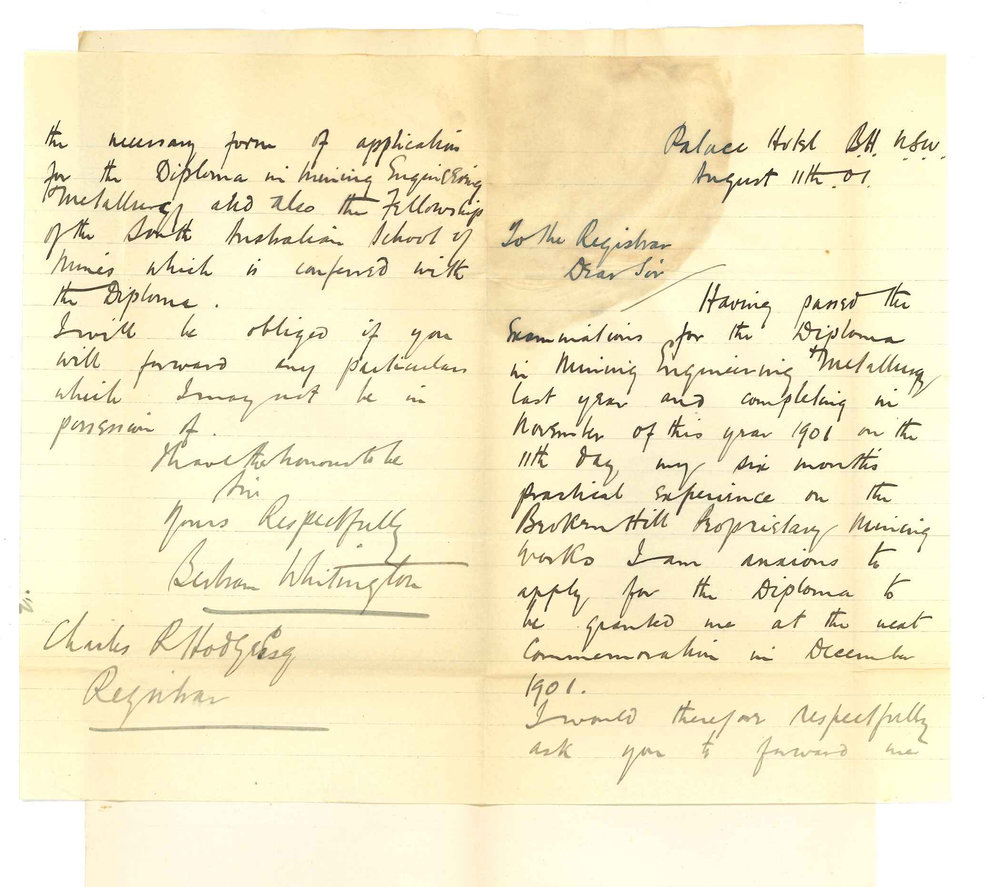 Palace Hotel B.H. N.S.W.
August 11th. 01.
To the Registrar
Dear Sir
Having passed the
Examinations for the Diploma
in Mining Engineering + Metallurgy
last year and completing in
November of this year 1901 on the
11th day, my six months
practical experience on the
Broken Hill Proprietary Mining
Works I am anxious to
apply for the Diploma to
be granted me at the next
Commemoration in December
1901.
I would therefore respectfully
ask you to forward me
the necessary form of application
for the Diploma in Mining Engineering
+ Metallurgy and also the Fellowship
of the South Australian School of
Mines which is conferred with
the Diploma.
I will be obliged if you
will forward any particulars
which I may not be in
possession of.
I have the honour to be
Sir
Yours Respectfully
Bertram Whitington
Charles R Hodge Esq
Registrar